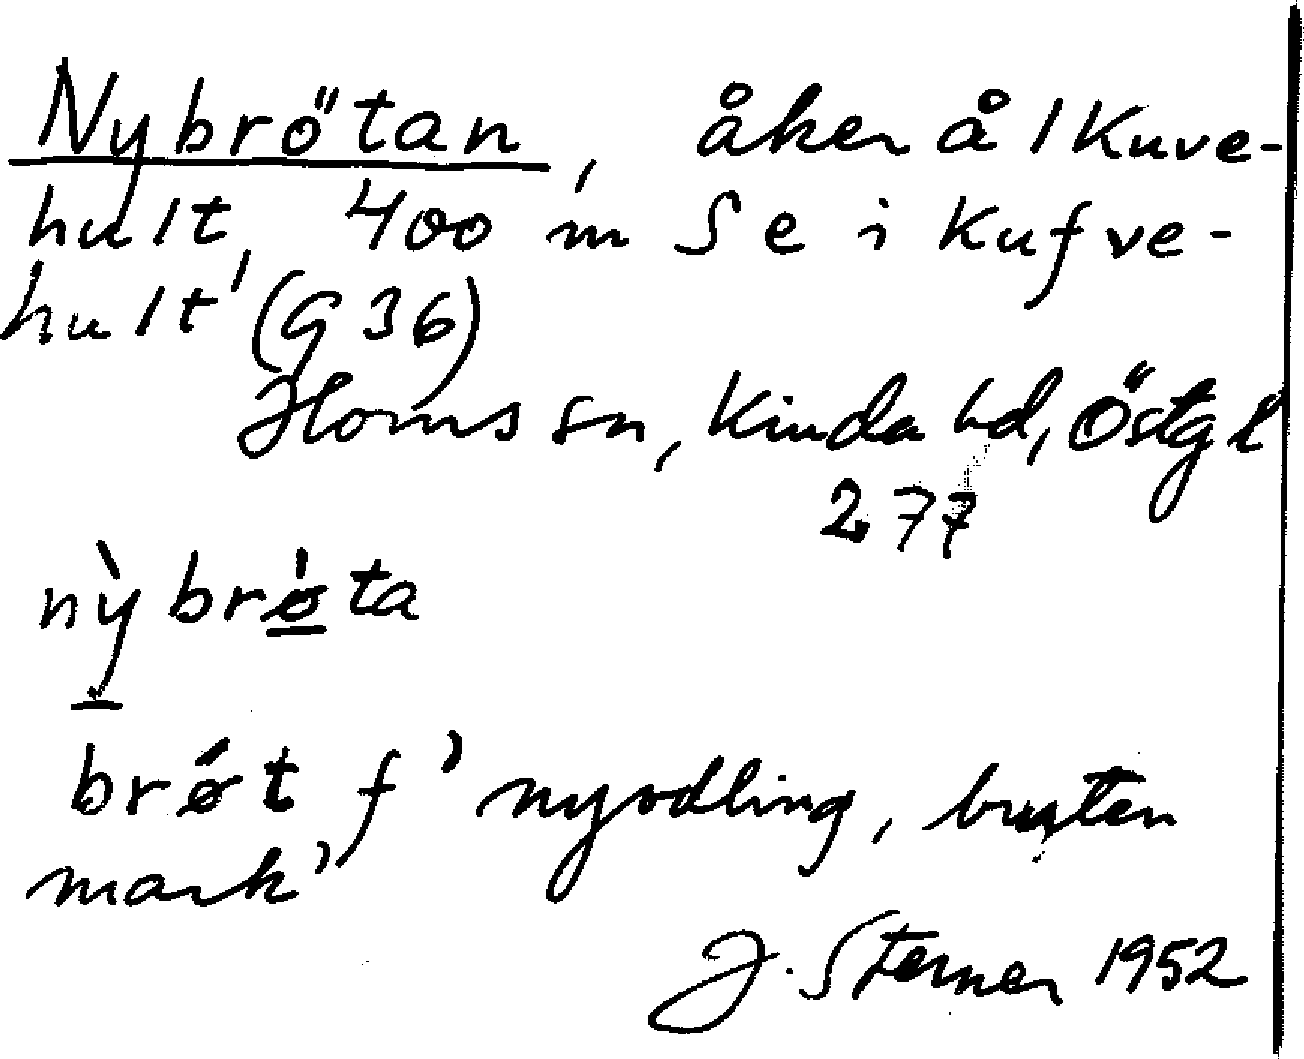 Nybrötan, åker å 1 Kuve-
hult, 400 m S e i Kufve-
hult' (G 36)
Horns sn, Kinda hd, Östgl
277
nỳbrø̀ta
brǿt f 'nyodling, bruten
mark'
J. Sterner 1952